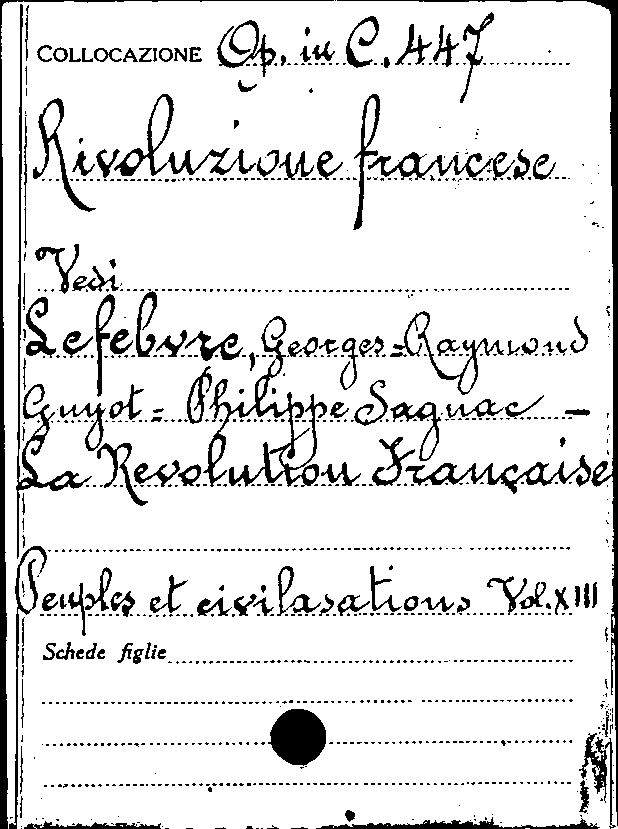 COLLOCAZIONE Op. in C. 447
Rivoluzione francese
Vedi
Lefebvre, Georges=Raymond
Guyot= Philippe Sagnac —
La Revolution Française
Peuples et civilasations Vol. XIII
Schede figlie